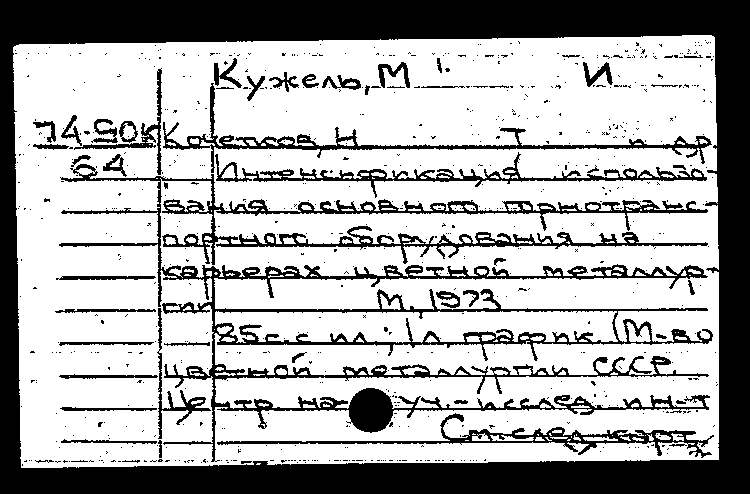 Кужель, М. И
74-50К Кочетков, Н Т и др.
64 Интенсификация использо-
вания основного горнотранс-
портного оборудования на
карьерах цветной металлур-
гии М., 1973
85с. с ил.; 1л. график. (М-во
цветной металлургии СССР.
Центр науч.-исслед. ин-т
См. след. карт.